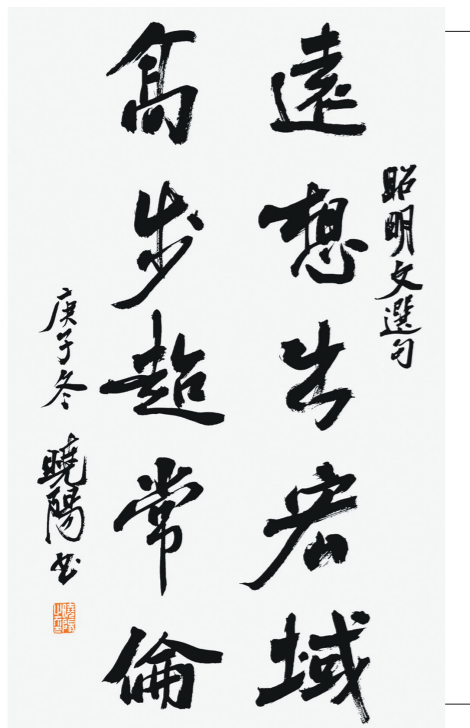 昭明文選句
遠想出宏域
髙步超常倫
庚子冬 曉陽书